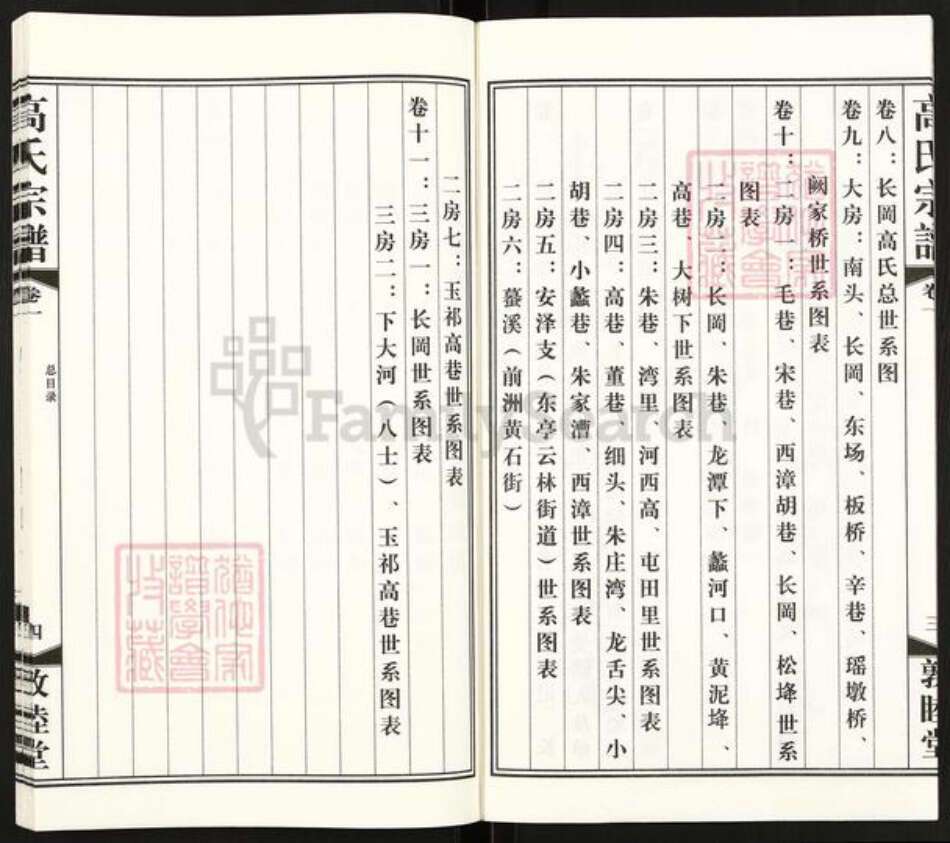 高氏宗谱
卷一
三
敦睦堂
卷八：长岡高氏总世系图
卷九：大房：南头、长岡、东场、板桥、辛巷、瑶墩桥、
阙家桥世系图表
卷十：二房一：毛巷、宋巷、西漳胡巷、长岡、松埄世系
图表
二房二：长岡、朱巷、龙潭下、蠡河口、黄泥埄、
高巷、大树下世系图表
二房三：朱巷、湾里、河西高、屯田里世系图表
二房四：高巷、董巷细头、朱庄湾、龙舌尖、小
胡巷、小蠡巷、朱家漕、西漳世系图表
二房五：安泽支（东亭云林街道）世系图表
二房六：蓉溪（前洲黄石街）
二房七：玉祁高巷世系图表
卷十一：三房一：长岡世系图表
三房二：下大河（八士）、玉祁高巷世系图表
高氏宗谱
卷一
总目录
四
敦睦堂
FamilySearch